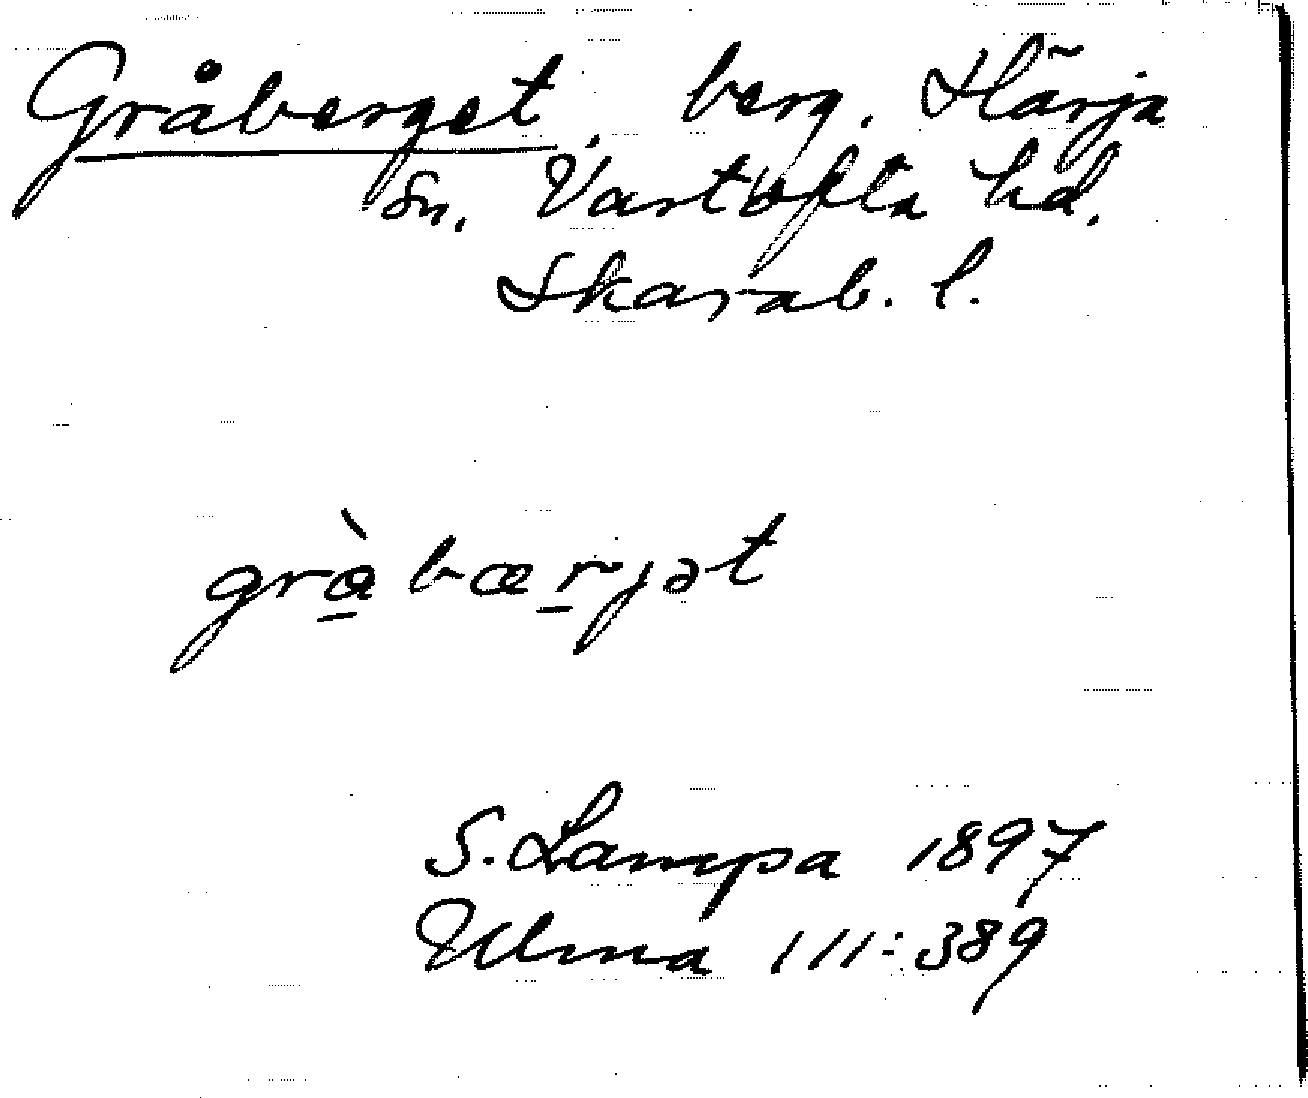 Gråberget, berg. Härja
Sn. Vartofta hd.
Skarab. l.
gràbærjət
S. Lampa 1897
Ulma 111:389